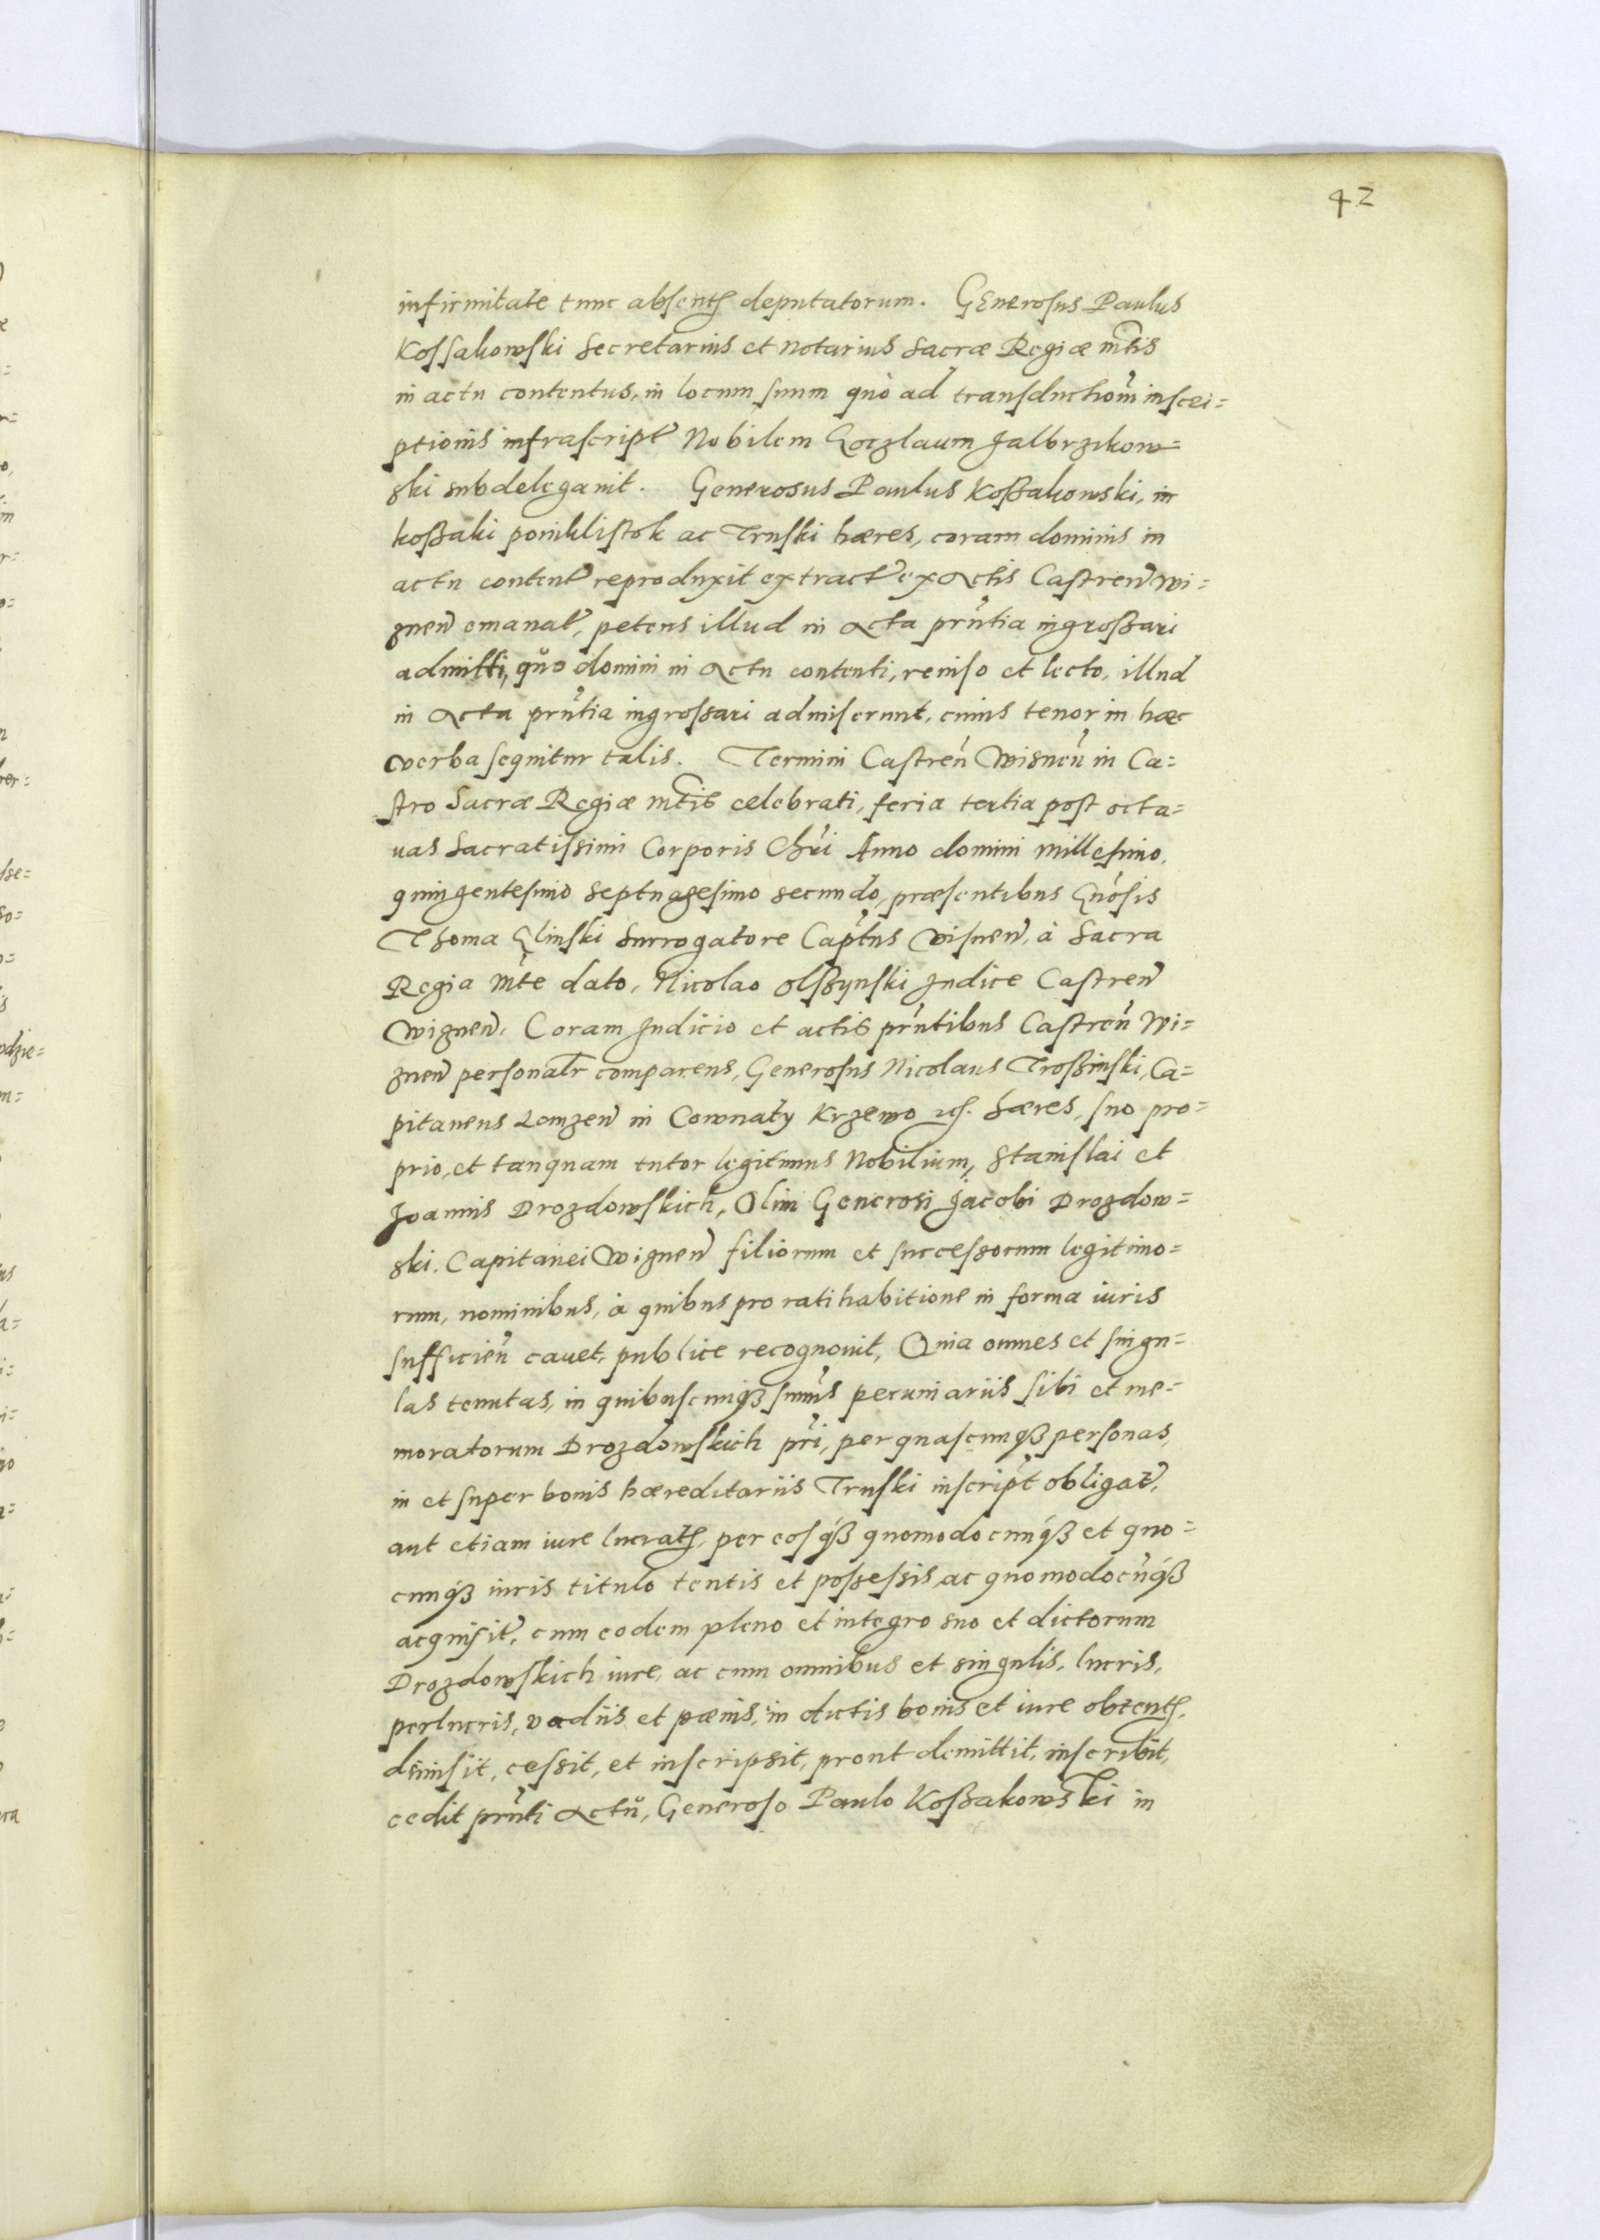 42
infirmitate tunc absenth deputatorum. GEnerosus Paulus
Kossakowski Secretarius et Notarius Sacræ Regiæ mtis
in actu contentus, in locum suum quò ad transductiom inscri=
ptionis infrascript Nobilem Goczlaum Jalbrzikow=
ski subdelegauit. Generosus Paulus Koßakowski, in
koßaki poniklistok ac Truski hæres, coram dominis in
actu content reproduxit extract ex Actis Castren wi=
znen emanat, petens illud in Acta prntia ingroßari
admitti, quo domini in Actu contenti, reuiso et lecto, illud
in Acta prntia ingrossari admiserunt, cuius tenor in hæc
verba sequitur talis. Termini Castren Wisnen in Ca=
stro Sacræ Regiæ mtis celebrati, feria tertia post octa=
uas Sacratissimi Corporis Chri Anno domini millesimo,
quingentesimo septuagesimo secundo, præsentibus Gnosis
Thoma Glinski Surrogatore Captus Visnen, à Sacra
Regia mte dato, Nicolao Olßynski Judice Castren
Wiznen. Coram Judicio et actis prntibus Castren Wi=
znen personalr comparens, Generosus Nicolaus Troßinski, Ca=
pitaneus Lomzen in Cownaty Krzewo hæres, suo pro=
prio, et tanquam tutor legitimus Nobilium, Stanislai et
Joannis Drozdowskich, Olim Generosi Jacobi Drozdow=
ski, Capitanei Wiznen filiorum et successorum legitimo=
rum, nominibus, à quibus pro ratihabitione in forma iuris
sufficien cauet, publice recognouit, Quia omnes et singu=
las tenutas, in quibuscunqȝ summis pecuniariis sibi et me=
moratorum Drozdowskich pri, per quascunqȝ personas,
in et super bonis hæreditariis Truski inscript obligat,
aut etiam iure lucrath, per eosqȝ quomodocunqȝ et quo=
cunqȝ iuris titulo tentis et possessis, ac quomodocunqȝ
acquisit, cum eodem pleno et integro suo et dictorum
Drozdowskich iure, ac cum omnibus et singulis, lucris,
perlucris, vadiis et pænis, in dictis bonis et iure obtenth,
dimisit, cessit, et inscripsit, prout demittit, inscribit,
cedit prnti Actu, Generoso Paulo Koßakowski in